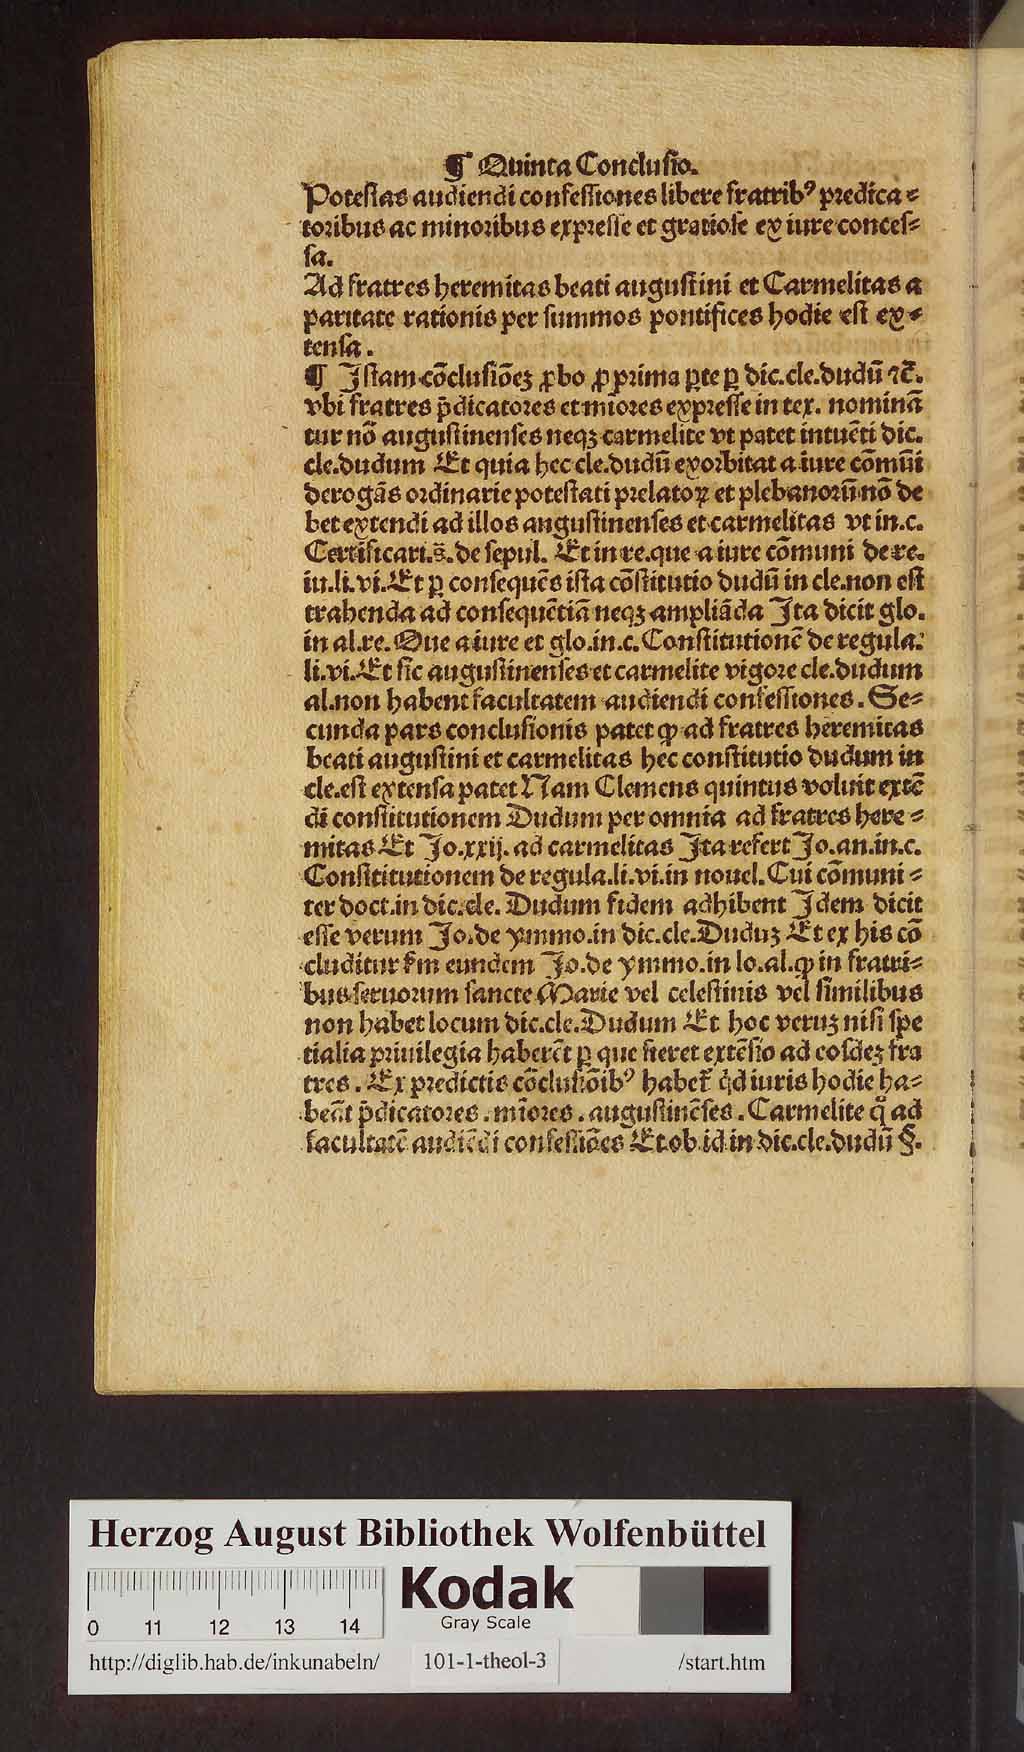 ¶ Quinta Conclusio.
Potestas audiendi confessiones libere fratribꝰ predica⸗
toribus ac minoribus expresse et gratiose ex iure conces⸗
sa.
Ad fratres heremitas beati augustini et Carmelitas a
paritate rationis per summos pontifices hodie est ex⸗
tensa.
¶ Istam cōclusiōeꝫ ꝓbo ꝓ prima ꝑte ꝑ dic.cle.dudū ⁊c̄.
vbi fratres p̄dicatores et mīores expresse in tex. nominā
tur nō augustinenses neqꝫ carmelite vt patet intuēti dic.
cle.dudum Et quia hec cle.dudū exorbitat a iure cōmūi
derogās ordinarie potestati prelatoꝝ et plebanorū nō de
bet extendi ad illos augustinenses et carmelitas vt in.c.
Certificari.s̄.de sepul. Et in re.que a iure cōmuni de re.
iu.li.vi.Et ꝑ consequēs ista cōstitutio dudū in cle.non est
trahenda ad consequētiā neqꝫ ampliāda Ita dicit glo.
in al.re.Que a iure et glo.in.c.Constitutionē de regula.
li.vi.Et sic augustinenses et carmelite vigore cle.dudum
al.non habent facultatem audiendi confessiones. Se⸗
cunda pars conclusionis patet ꝙ ad fratres heremitas
beati augustini et carmelitas hec constitutio dudum in
cle.est extensa patet Nam Clemens quintus voluit extē
di constitutionem Dudum per omnia ad fratres here⸗
mitas Et Jo.xxij. ad carmelitas Ita refert Jo.an.in.c.
Constitutionem de regula.li.vi.in nouel.Cui cōmuni⸗
ter doct.in dic.cle. Dudum fidem adhibent Idem dicit
esse verum Jo.de ymmo.in dic.cle.Duduꝫ Et ex his cō
cluditur ẜm eundem Jo.de ymmo.in lo.al.ꝙ in fratri⸗
bus seruorum sancte Marie vel celestinis vel similibus
non habet locum dic.cle.Dudum Et hoc veruꝫ nisi spe
tialia priuilegia haberēt ꝑ que fieret extēsio ad eosdeꝫ fra
tres. Ex predictis cōclusiōibꝰ habet᷑ qd̓ iuris hodie ha⸗
beāt p̄dicatores.mīores.augustinēses.Carmelite qͦ ad
facultatē audiēdi confessiōes Et ob id in dic.cle.dudū §.
Herzog August Bibliothek Wolfenbüttel
Kodak
Gray Scale
0 11 12 13 14
http://diglib.hab.de/inkunabeln/ 101-1-theol-3 /start.htm